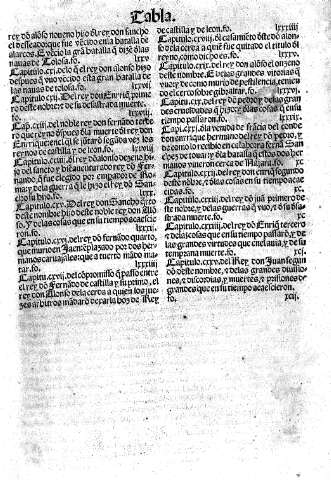 Tabla.
rey dõ alõso noueno hijo dl rey don sancho
el desseado: que fue vẽcido en la batalla de
alarcos. E vẽcio la grã batalla q̃ dizẽ dlas
nauas de Tolosa. fo. lxxv
Capitulo .cxi. de lo q̃ el rey don alonso hizo
despues q̃ vuo vẽcido esta gran batalla de
las nauas de tolosa. fo. lxxvij
Capitulo .cxij. del rey don Enriq̃ prime
ro deste nõbre: z de su desastrada muerte.
fo. lxxviij
Cap. .cxiij. del noble rey don fernãdo terce
ro que reyno despues dla muerte dl rey don
Enrrique
rey no de castilla y de leon. fo.
Capitulo .cxiiij. del rey dõ alonso dezeno hi
jo del sancto y bienauenturado rey dõ Fer
nando. q̃ fue elegido por emperador de Ro
ma: y de la guerra q̃ le hizo el rey dõ San
cho su hijo. lxxx.
Capitulo .cxv. Del rey don Sancho q̃rto
deste nombre hijo deste noble rey don Alõ
so. Y de las cosas que en su tiempo passarõ.
fo.
Capitulo .cxvi. del rey dõ fernãdo quarto,
que murio en Jaen aplazado por dos her
manos caruajales: que a tuerto mãdo ma
tar. fo. lxxxiij
Capitulo .cxvij. del cõpromisso q̃ passo entre
el rey dõ Fernãdo de castilla y su primo, el
rey don Alonso de la cerda a quien los jue
zes arbitros mãdarõ dexar la boz de Rey
de castilla y de leon. fo. lxxxiiij
Capitulo .cxviij. dl casamiẽto dste dõ alon
so de la cerda a quiẽ fue quitado el titulo dl
reyno, como dicho es. fo.
Capitulo .cxix. del rey don alõso el onzeno
deste nombre. E de las grandes vitorias q̃
vuo, y de su muerte en la pestilencia, tenien
do el cerco sobre gibraltar. fo. lxxxv.
Capitulo .cxx. del rey dõ pedro: y delas gran
des crueldades q̃ hizo: z delas cosas q̃ en su
tiempo passaron. fo.
Cap. .cxxi. dla venida de frãcia del conde
don enrriq̃ hermano del rey dõ pedro, y
de como lo recibio en calahorra fernã San
chez de touar: y dla batalla q̃ estos dos her
manos vuieron cerca de Najara. fo. xc
Capitulo .cxxij. del rey don enriq̃ segundo
deste nõbre, z dlas cosas q̃ en su tiempo acae
cidas. fo.
Capitulo .cxxiij. del rey dõ juã primero de
ste nõbre, y delas guerras q̃ vuo, z d su desa
strada muerte. fo.
Capitulo .cxxiiij. del rey dõ Enriq̃ tercero
z delas cosas que en su tiempo passarõ, z de
las grandes virtudes que en el auia, y de su
temprana muerte. fo. xcj.
Capitulo .cxxv. del Rey don Juan segun
do deste nombre, z delas grandes diuisio
nes, z discordias, y muertes, z prisiones de
grandes que en su tiempo acaescieron.
fo. xcij.